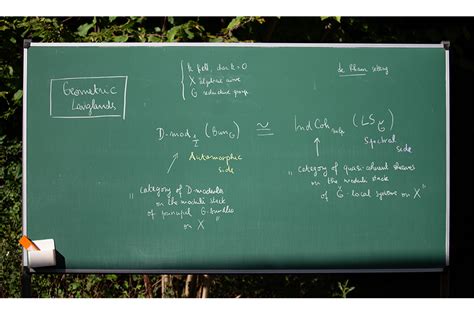 Geometric
Langlands
k field, char k = 0
X algebraic curve
G reductive group
de Rham setting
D-mod_{1/2} (Bun_G) ≅ IndCoh_{nilp} (LS_Ǧ)
Automorphic
side
Spectral
side
"category of D-modules
on the moduli stack
of principal G-bundles
on X"
"category of quasi-coherent sheaves
on the moduli stack
of Ǧ-local systems on X"